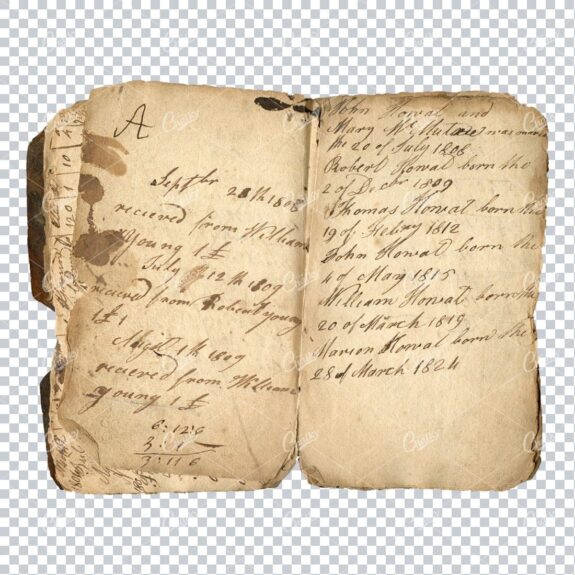 A
Septbr 28th 1808
recieved from William
Young 1 £
July 12th 1809
recieved from Robert Young
1 £ 1
Apll 1th 1809
recieved from William
Young 1 £
6:12:6
3:1
3:11 6
John Howat and
Mary Mc was
the 20 of July 1808
Robert Howat born the
2 of Decbr 1809
Thomas Howat born the
19 of Febry 1812
John Howat born the
4 of May 1815
William Howat born the
20 of March 1819
Marion Howat born the
28 of March 1824